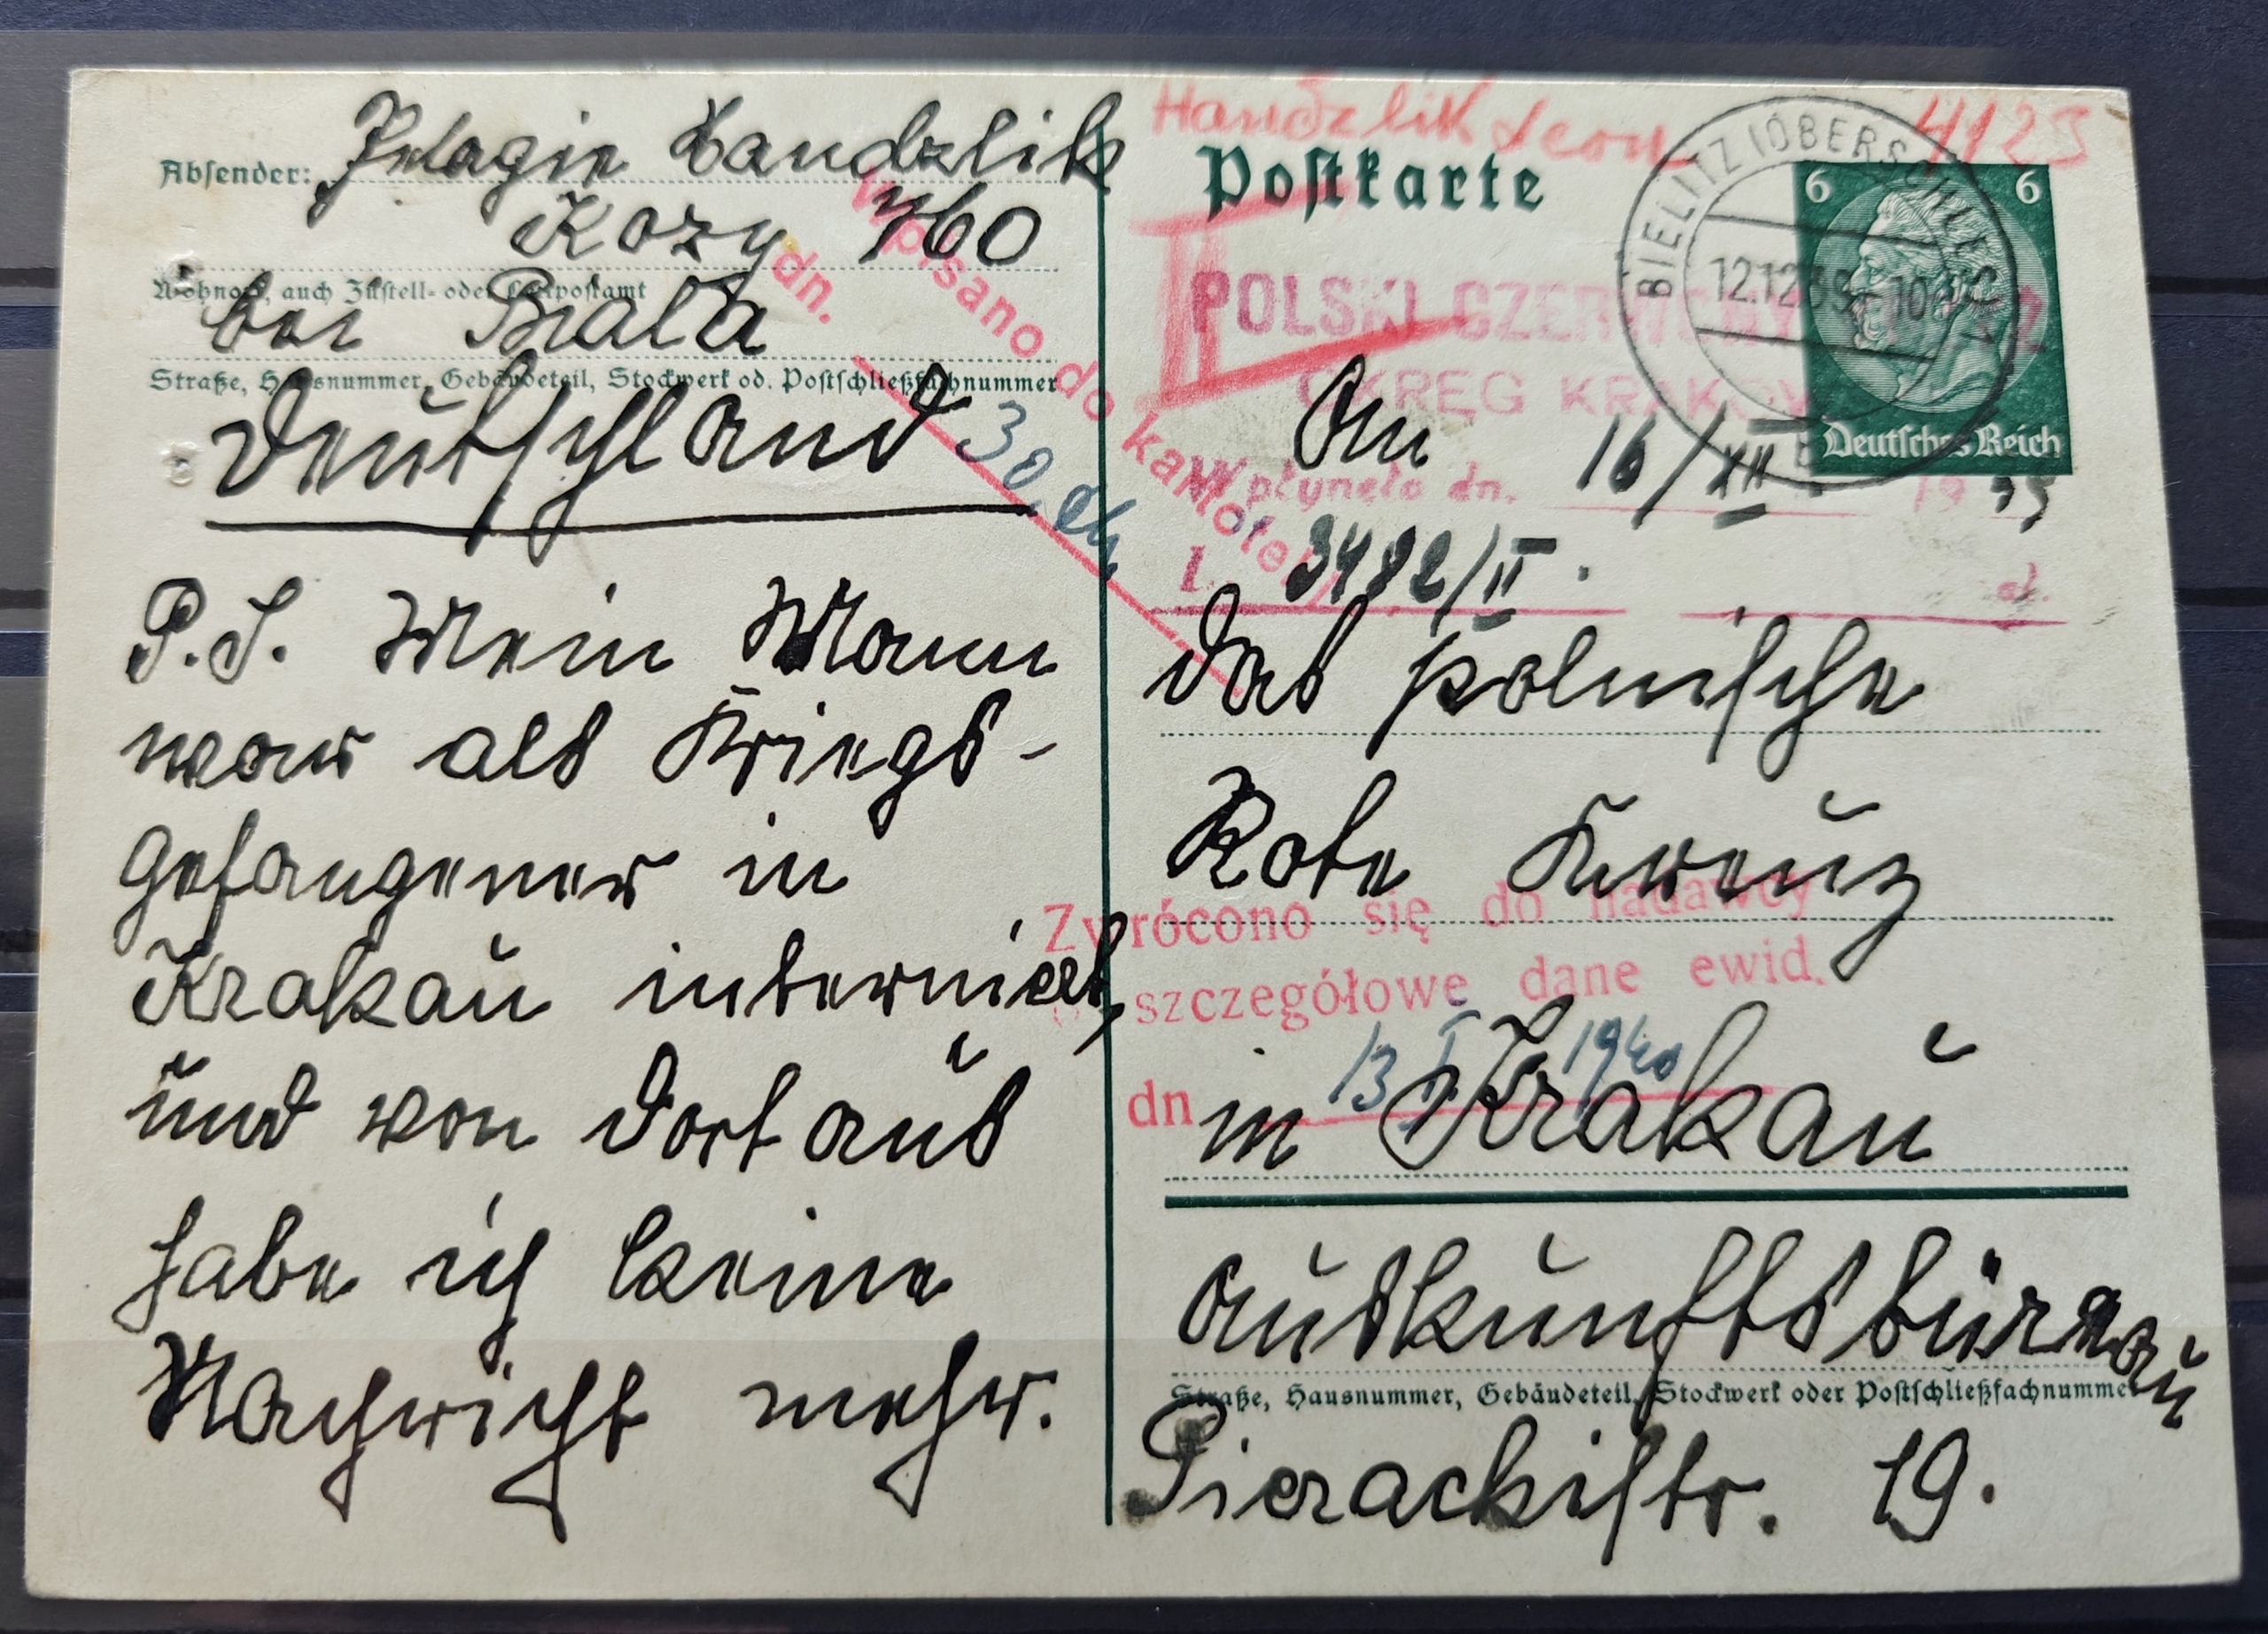 Absender: Pelagie Handzlik
Kozy 760
Wohnort, auch Zustell- oder Leitpostamt
bei Biala
Straße, Hausnummer, Gebäudeteil, Stockwerk od. Postschließfachnummer
Deutschland
P.S. Mein Mann
war als Kriegs-
gefangener in
Krakau interniert,
und von dort aus
habe ich keine
Nachricht mehr.
Wpisano do kartoteki
dn. 30.
Handzlik Leon
Postkarte
II
BIELITZ (OBERSCHLES)
12.12.39.-10
6 6
Deutsches Reich
POLSKI CZERWONY
OKRĘG KRAKOW
An
Wpłynęło dn. 16/XII 1939
L. 3482/II.
das polnische
Rote Kreuz
Zwrócono się do nadawcy
o szczegółowe dane ewid.
dn 13 I 1940
in Krakau
Auskunftsbüreau
Straße, Hausnummer, Gebäudeteil, Stockwerk oder Postschließfachnummer
Pierackistr. 19.